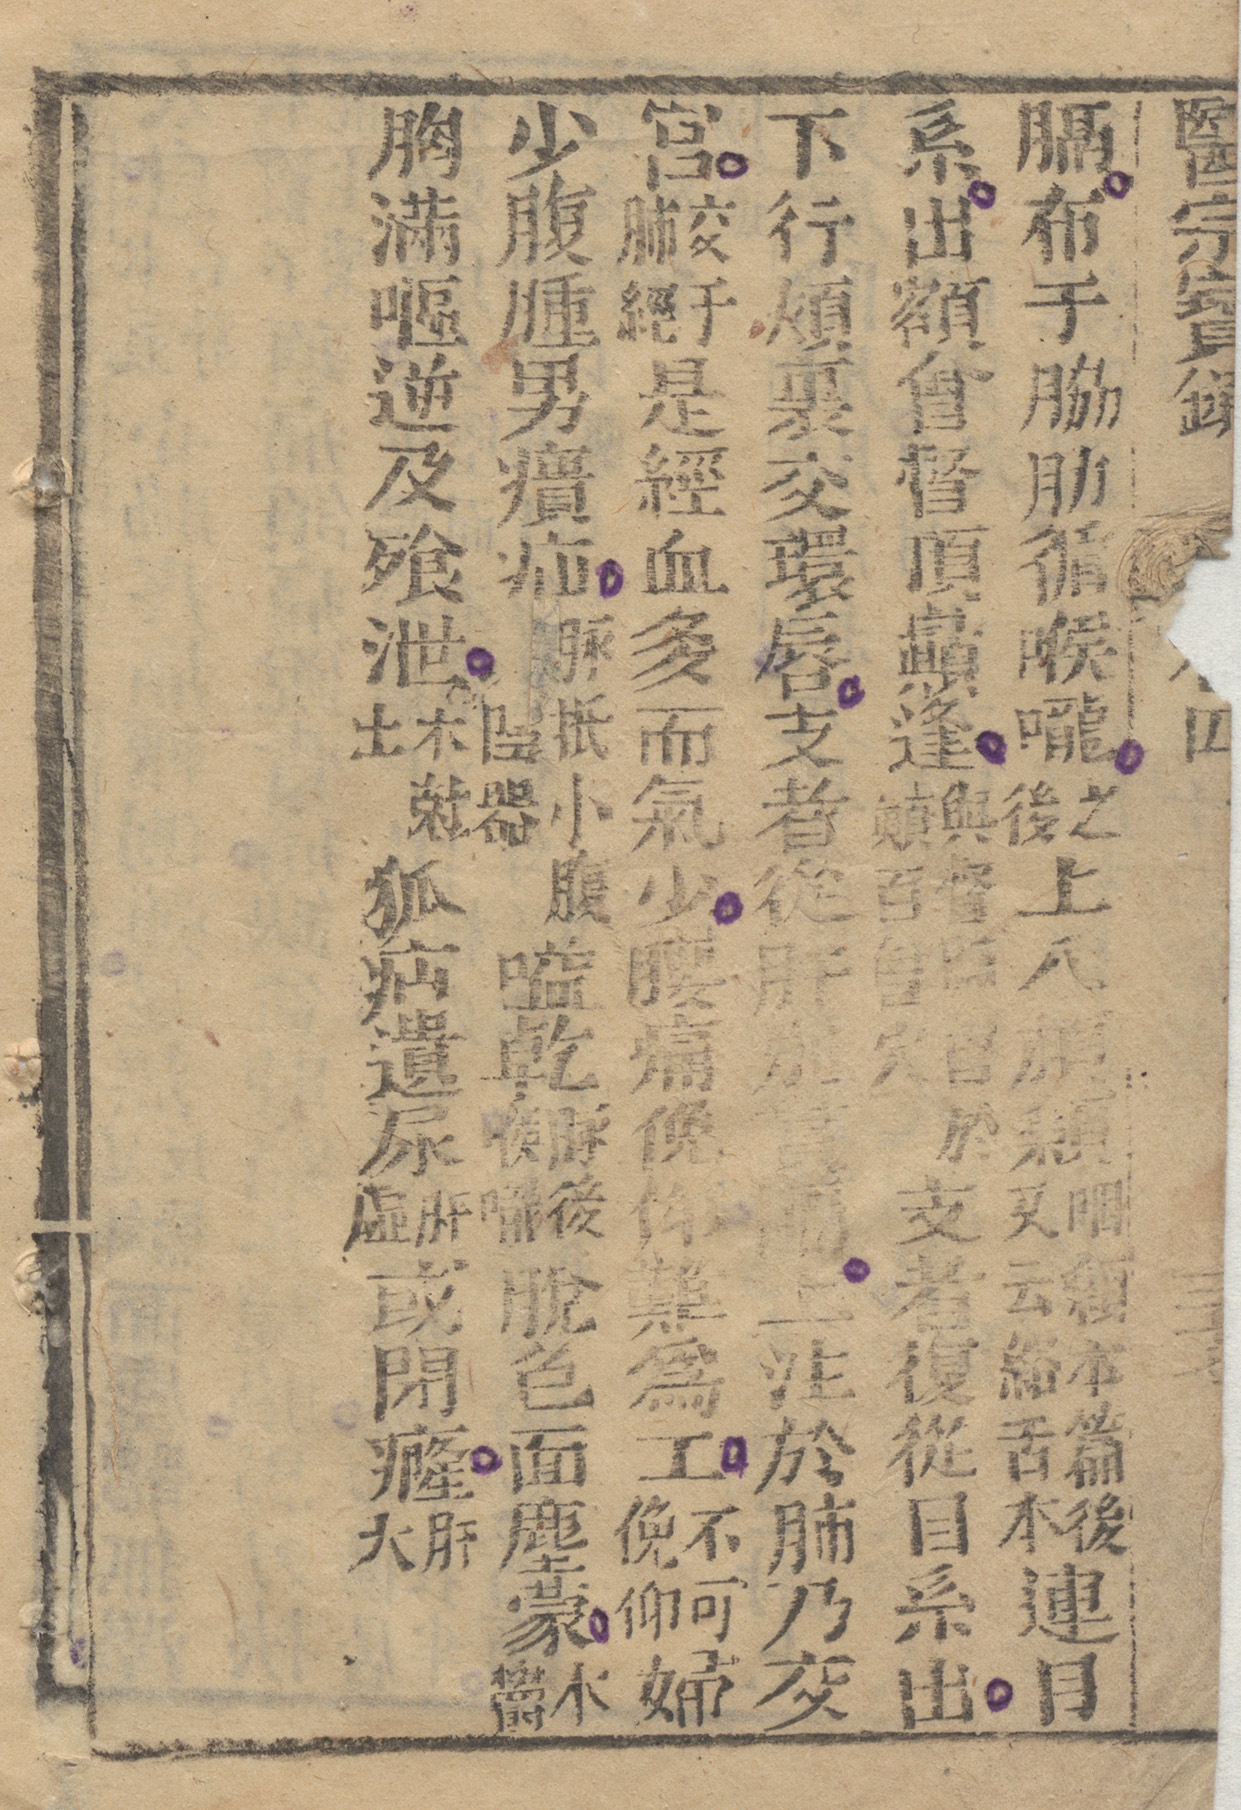 醫宗寶鏡 四
膈布于脇肋循喉嚨之後上入頏顙咽顙本篇後又云絡舌本連目
系出額會督頂巔逢與督脈會於巔百會穴支者復從目系出
下行頰裏交環唇支者從肝別貫膈上注於肺乃交
宮交于肺絕是經血多而氣少腰痛俛仰難為工不可俛仰婦
少腹腫男㿉疝脉抵小腹陰器嗌乾脉後喉嚨脫色面塵蒙木鬱
胸滿嘔逆及飱泄木尅土狐疝遺尿肝虛或閉癃肝火